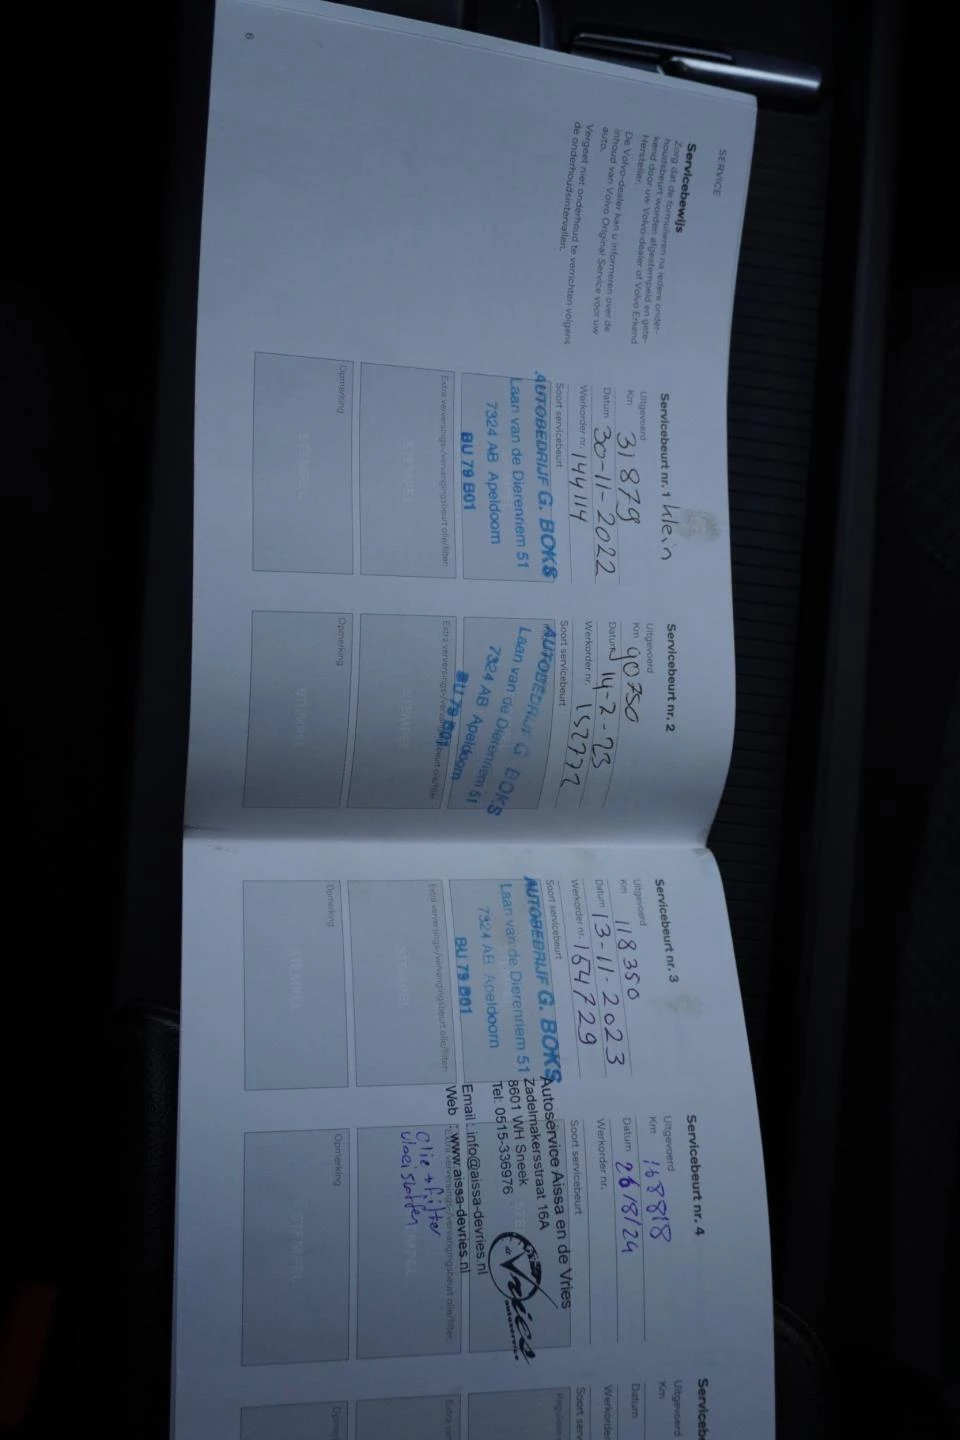 SERVICE
Servicebewijs
Zorg dat de formulieren na iedere onder-
houdsbeurt worden afgestempeld en gete-
kend door uw Volvo-dealer of Volvo Erkend
Hersteller.
De Volvo-dealer kan u informeren over de
inhoud van Volvo Original Service voor uw
auto.
Vergeet niet onderhoud te verrichten volgens
de onderhoudsintervallen.
6
Servicebeurt nr. 1 klein
Uitgevoerd
Km 31879
Datum 30-11-2022
Werkorder nr. 144114
Soort servicebeurt
AUTOBEDRIJF G. BOKS
Laan van de Dierenriem 51
7324 AB Apeldoorn
BU 79 B01
Extra verversings-/vervangingsbeurt olie/filter:
STEMPEL
Opmerking
STEMPEL
Servicebeurt nr. 2
Uitgevoerd
Km 90750
Datum 14-2-23
Werkorder nr. 152772
Soort servicebeurt
AUTOBEDRIJF G BOKS
Laan van de Dierenriem 51
7324 AB Apeldoorn
BU 79 B01
Extra verversings-/vervangingsbeurt olie/filter:
STEMPEL
Opmerking
STEMPEL
Servicebeurt nr. 3
Uitgevoerd
Km 118350
Datum 13-11-2023
Werkorder nr. 164729
Soort servicebeurt
AUTOBEDRIJF G. BOKS
Laan van de Dierenriem 51
7324 AB Apeldoorn
BU 79 B01
Extra verversings-/vervangingsbeurt olie/filter:
STEMPEL
Opmerking
STEMPEL
Servicebeurt nr. 4
Uitgevoerd
Km 168818
Datum 26/8/24
Werkorder nr.
Soort servicebeurt
Autoservice Aissa en de Vries
Zadelmakersstraat 16A
8601 WH Sneek
Tel: 0515-336976
Email : info@aissa-devries.nl
Web : www.aissa-devries.nl
Vries
autoservice
Extra verversings-/vervangingsbeurt olie/filter:
Olie + filter
vloeistoffen
STEMPEL
Opmerking
STEMPEL
Uitgevoerd
Km
Datum
Werkorder